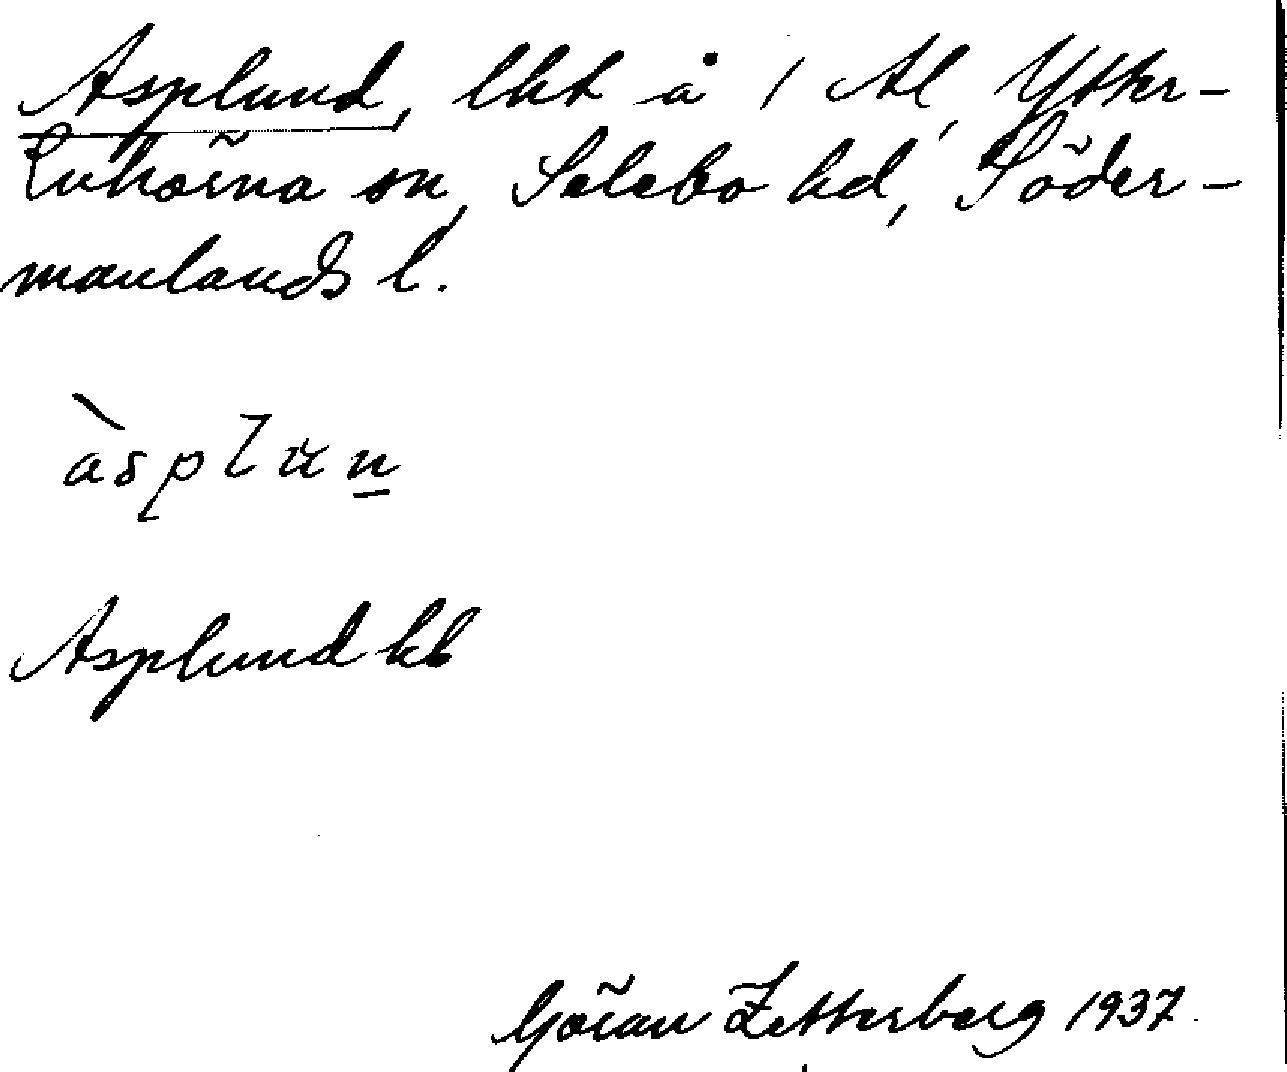 Asplund, lht å 1 Al, Ytter-
Enhörna sn, Selebo hd, Söder-
manlands l.
àsplun
Asplund kb
Göran Zetterberg 1937.